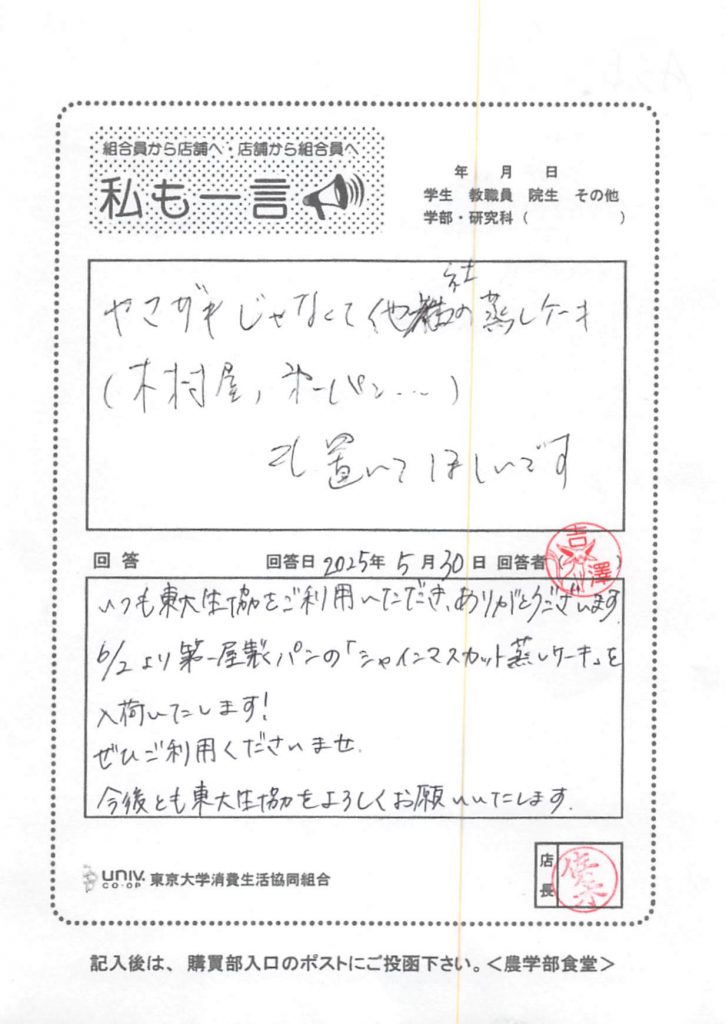 組合員から店舗へ・店舗から組合員へ
私も一言
年 月 日
学生 教職員 院生 その他
学部・研究科( )
ヤマザキじゃなくて他社の蒸しケーキ
(木村屋、第一パン…)
も置いてほしいです
回答 回答日 2025年 5月30日 回答者( )
吉澤
いつも東大生協をご利用いただき、ありがとうございます。
6/2より第一屋製パンの「シャインマスカット蒸しケーキ」を
入荷いたします!
ぜひご利用くださいませ。
今後とも東大生協をよろしくお願いいたします。
UNIV. CO-OP 東京大学消費生活協同組合
店長
記入後は、購買部入口のポストにご投函下さい。<農学部食堂>